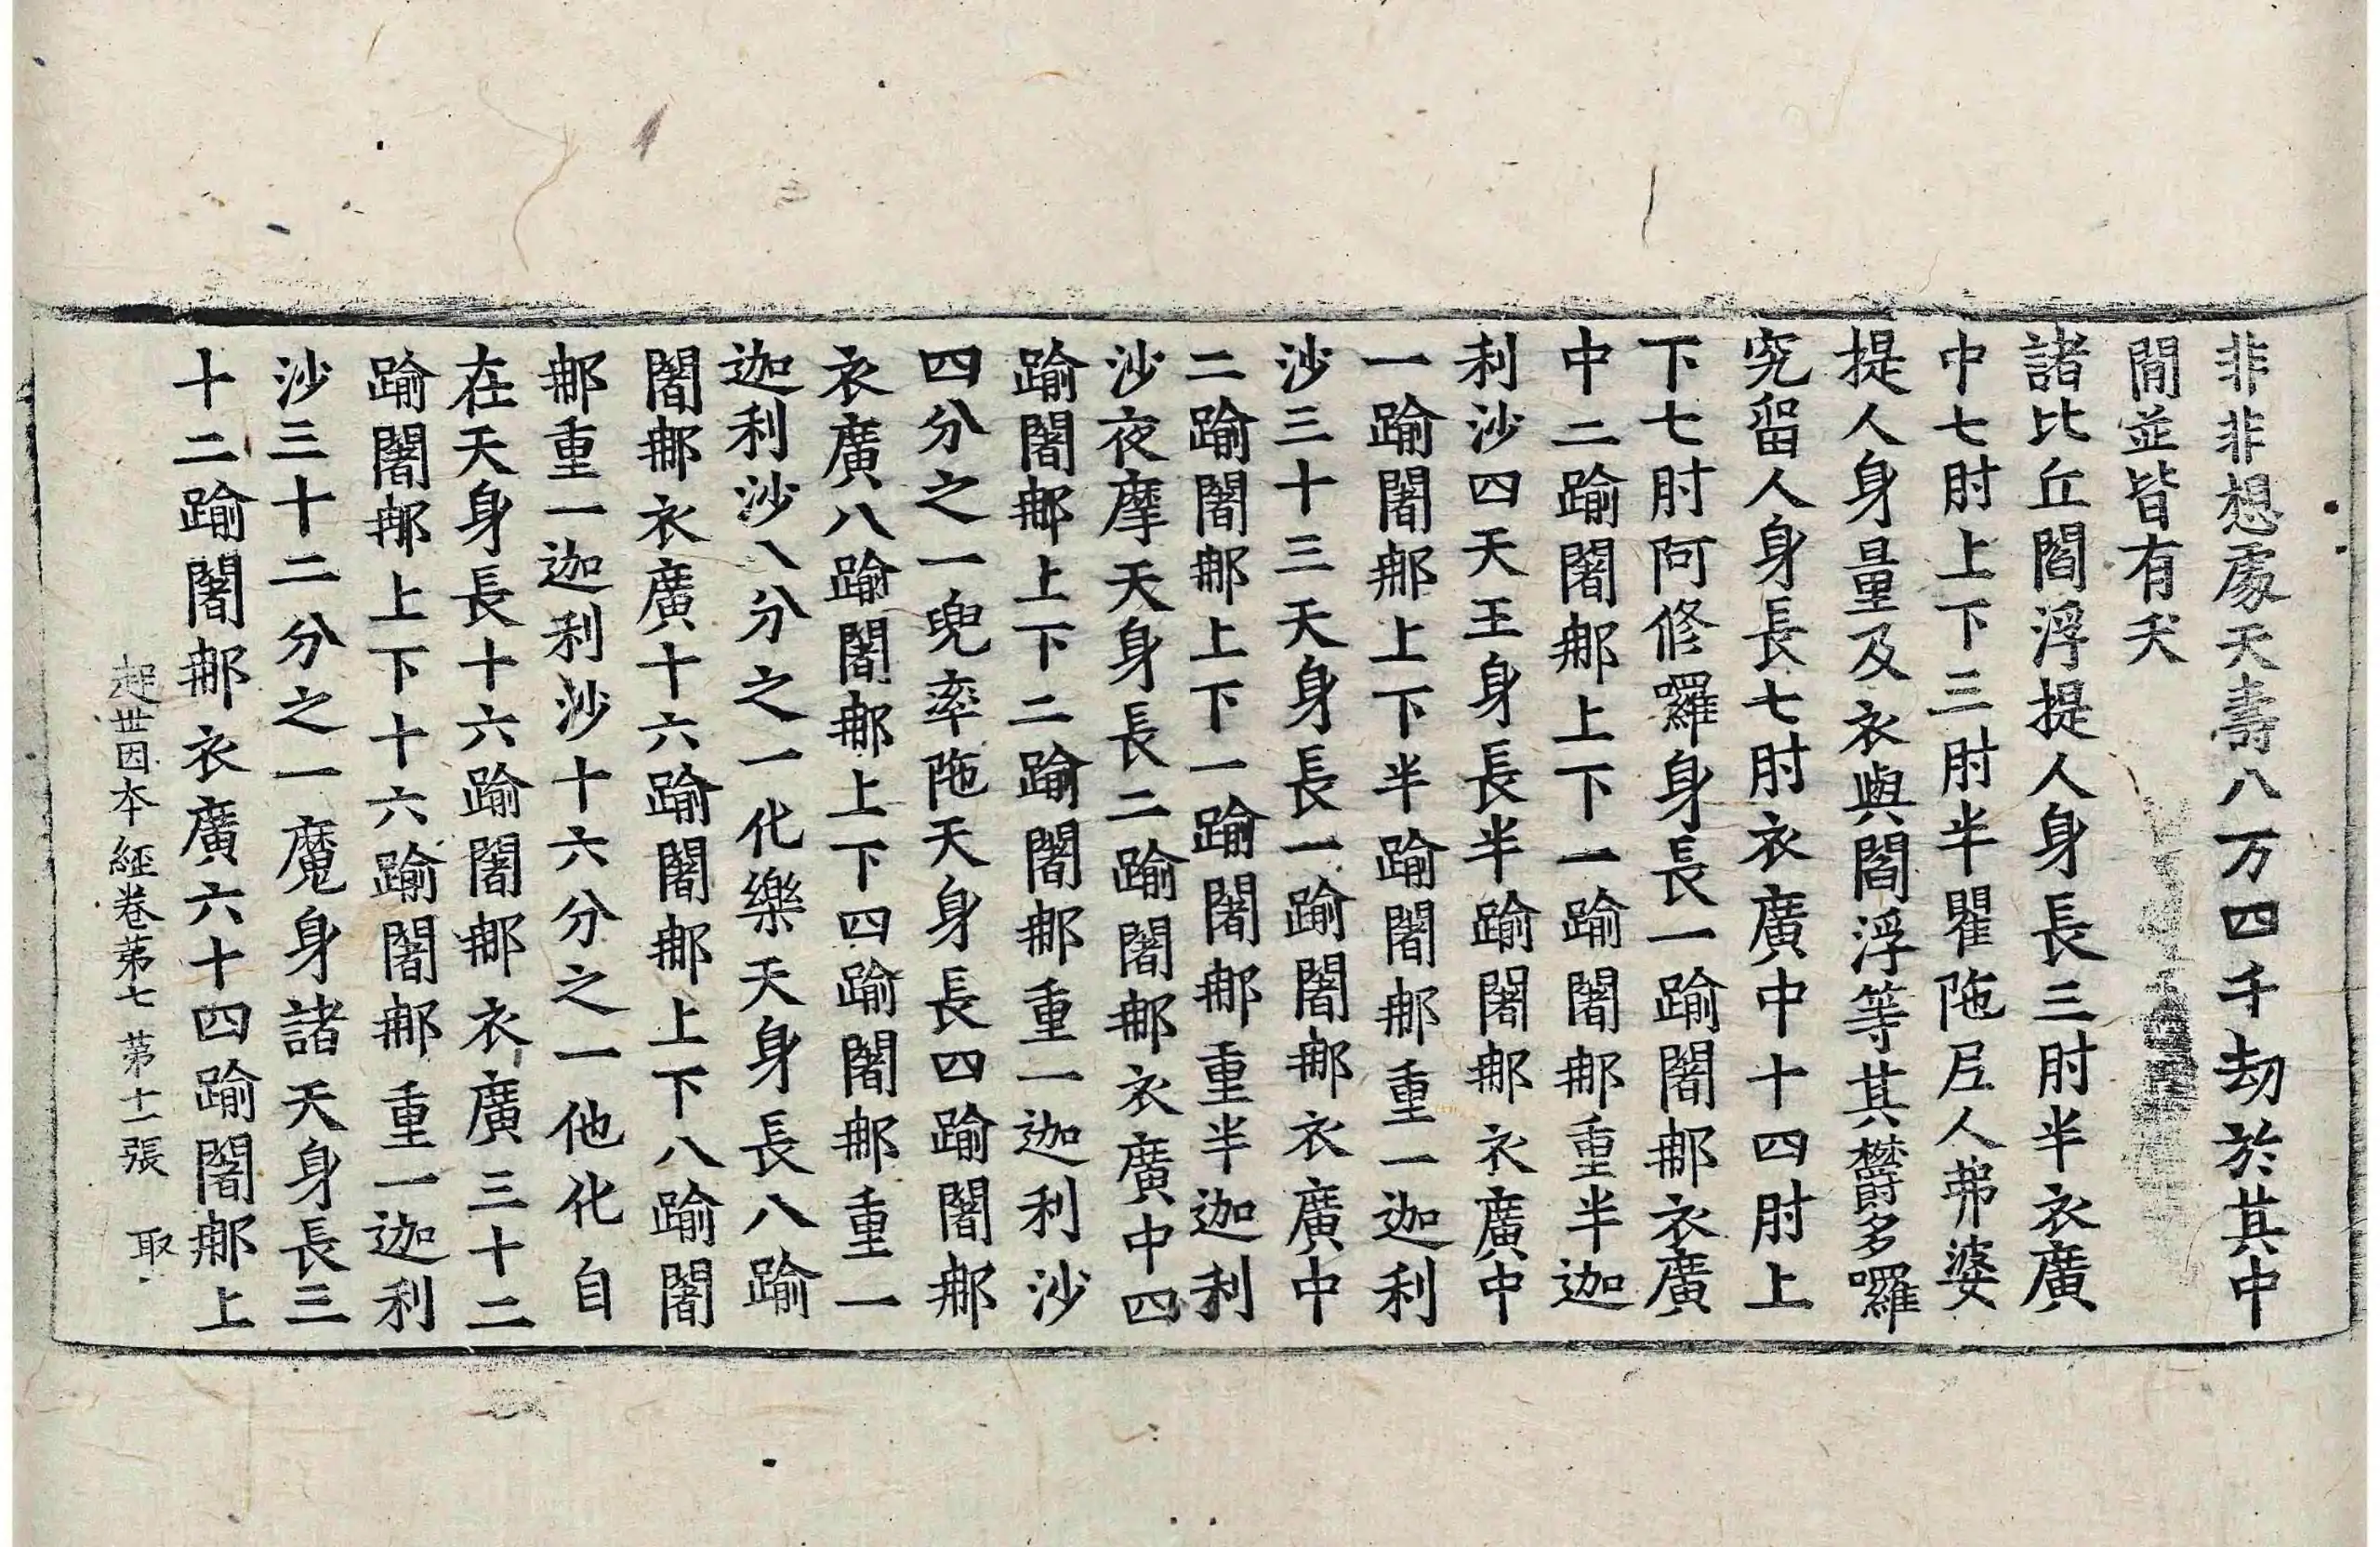 非非想處天壽八万四千劫於其中
間並皆有夭
諸比丘閻浮提人身長三肘半衣廣
中七肘上下三肘半瞿陁尼人弗婆
提人身量及衣與閻浮等其欝多囉
究留人身長七肘衣廣中十四肘上
下七肘阿修囉身長一踰闍郍衣廣
中二踰闍郍上下一踰闍郍重半迦
利沙四天王身長半踰闍郍衣廣中
一踰闍郍上下半踰闍郍重一迦利
沙三十三天身長一踰闍郍衣廣中
二踰闍郍上下一踰闍郍重半迦利
沙夜摩天身長二踰闍郍衣廣中四
踰闍郍上下二踰闍郍重一迦利沙
四分之一兜率陁天身長四踰闍郍
衣廣八踰闍郍上下四踰闍郍重一
迦利沙八分之一化樂天身長八踰
闍郍衣廣十六踰闍郍上下八踰闍
郍重一迦利沙十六分之一他化自
在天身長十六踰闍郍衣廣三十二
踰闍郍上下十六踰闍郍重一迦利
沙三十二分之一魔身諸天身長三
十二踰闍郍衣廣六十四踰闍郍上
起世因本經卷第七 第十一張 取